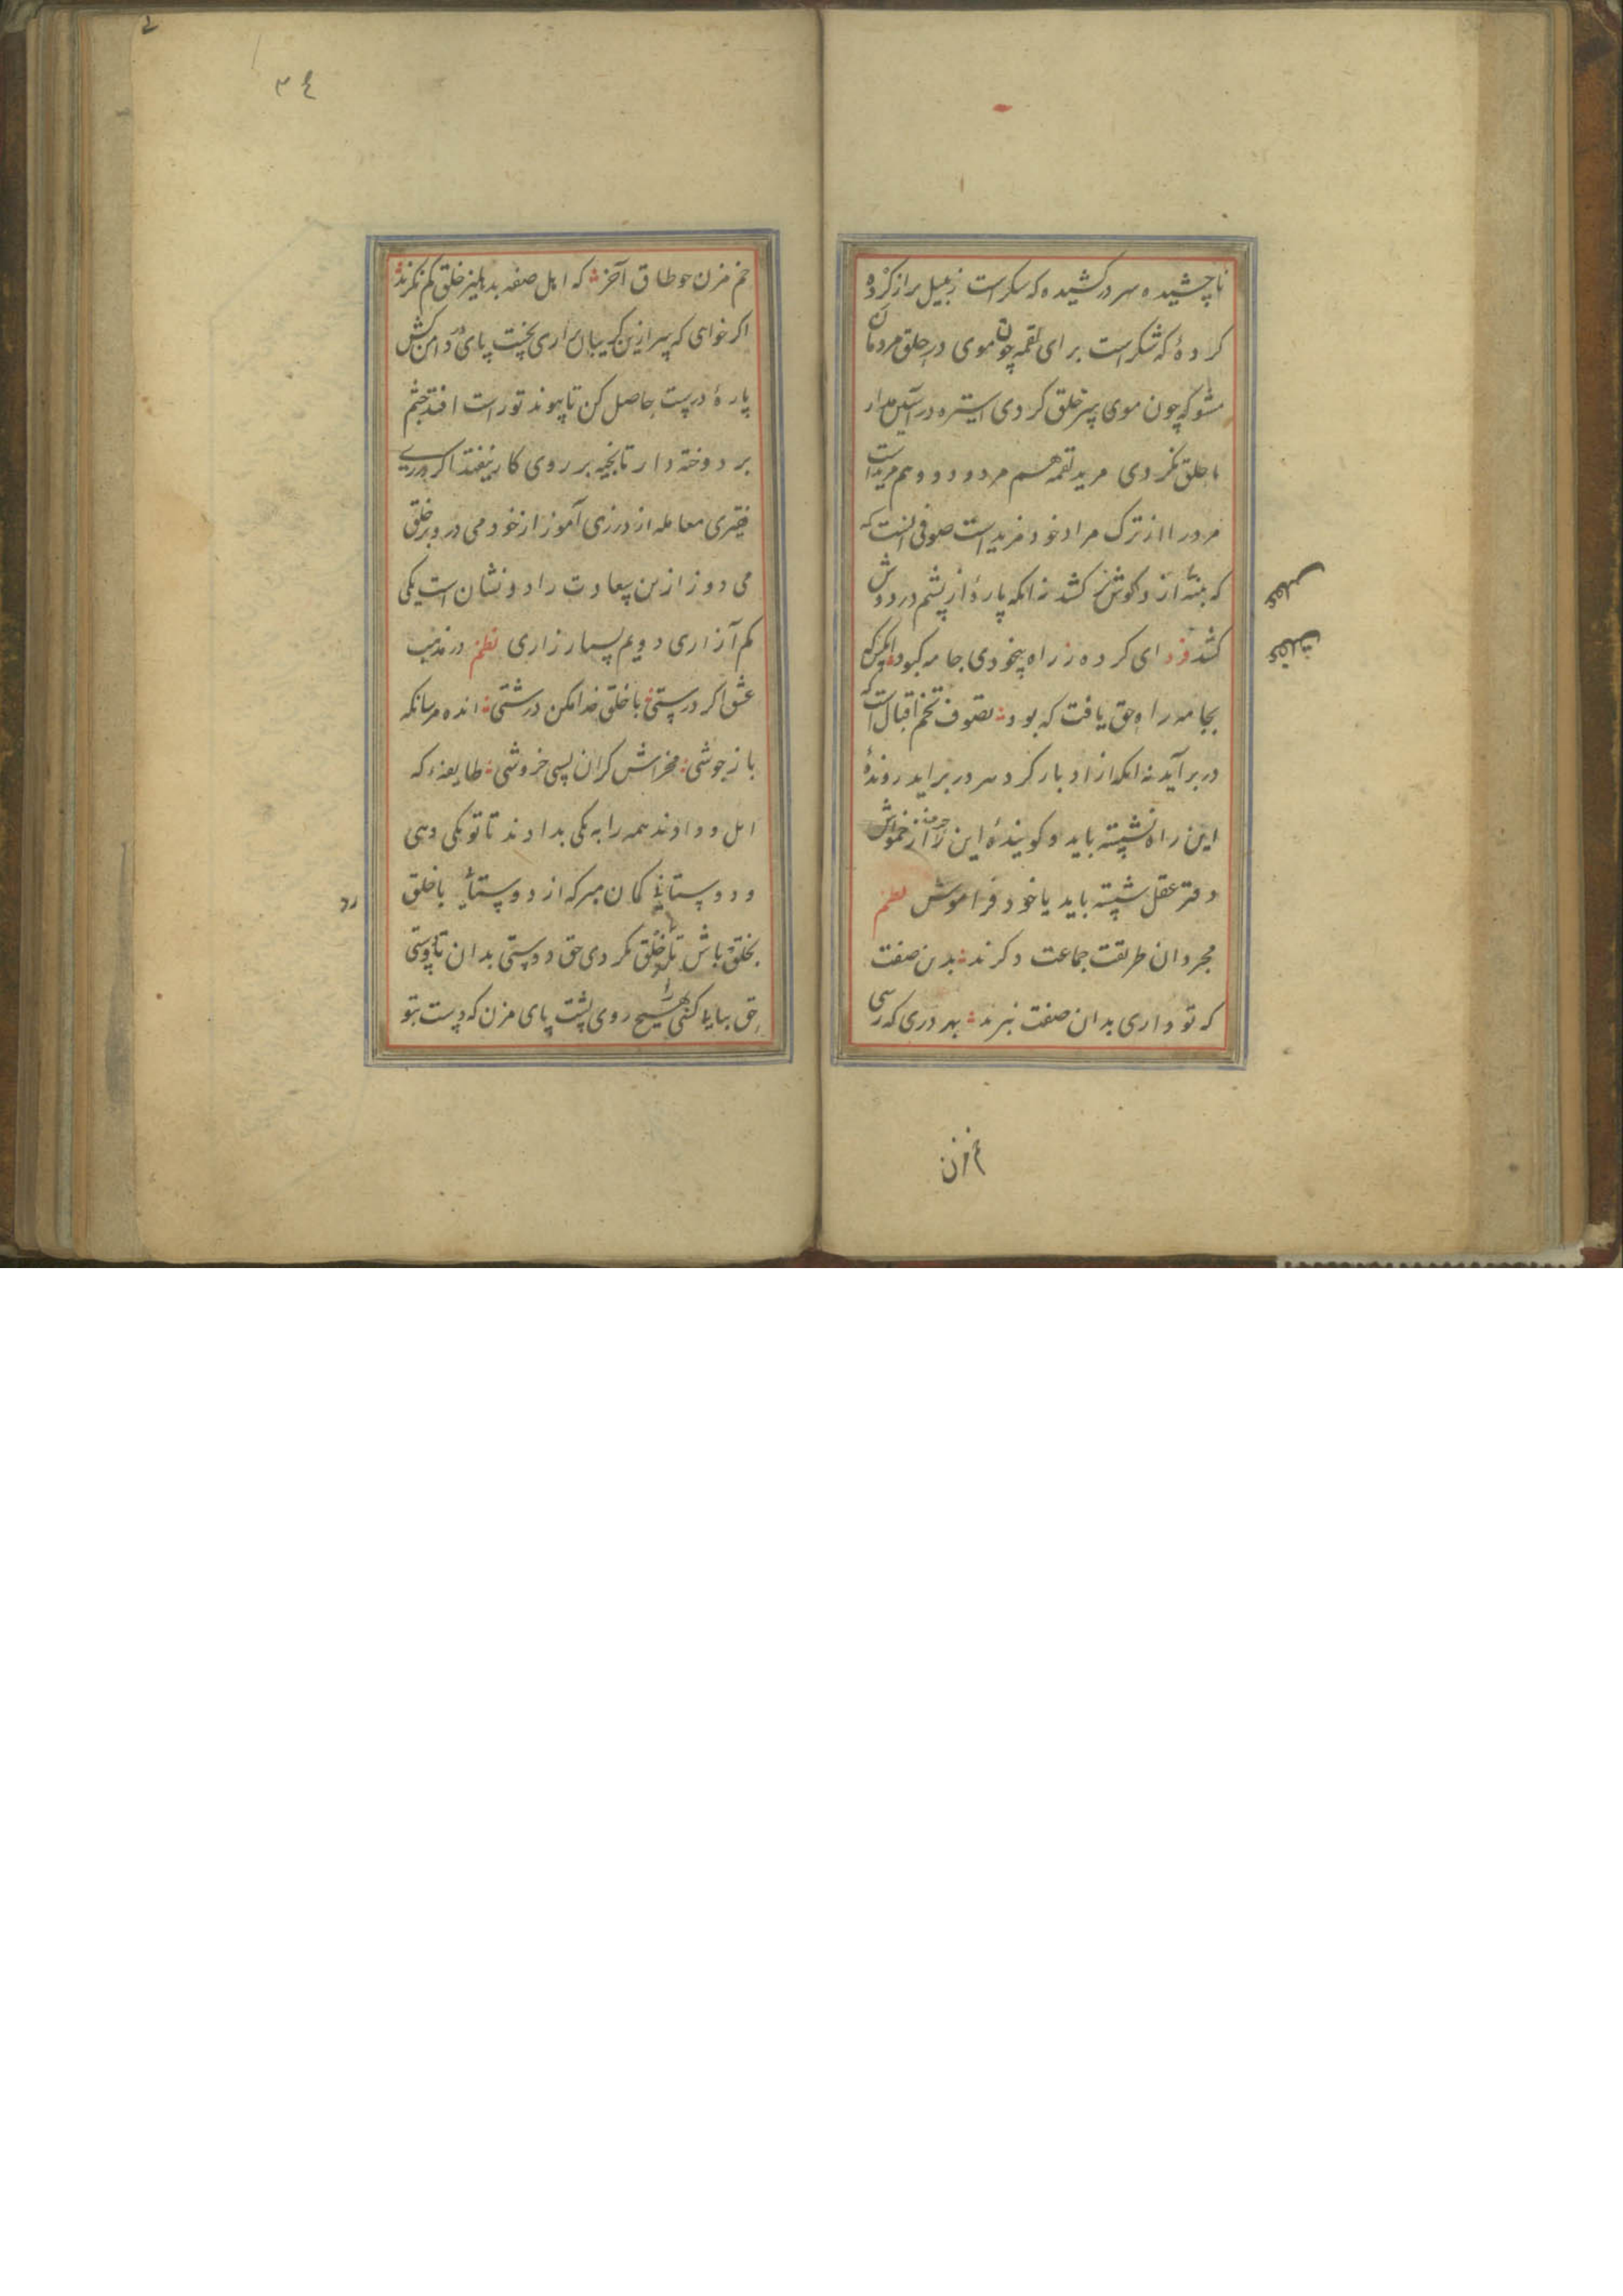 ناچشیده سر درکشیده که سکر است زنبیل پر از کرده
کرده که شکر است برای لقمه چون موی در حلق مردمان
مشو که چون موی بسر خلق کردی استره در آستین مدار
با خلق نکردی مرید لقمه هم مردود و هم مرید است
مرورا از ترک مراد خود مزید است صوفی آنست که
که پنبه از گوش کشد نه آنکه پاره از پشم در دوش
کشد فرد ای کرده ز راه بیخودی جامه کبود لیکن که
بجامه راه حق یافت که بود تصوف تخم اقبال است که
در برآید نه آنکه از ادبار کرد سر در برآید رونده
این راه نشسته باید و کوینده این راز خموش
دفتر عقل شسته باید یا خود فراموش نظم
مجردان طریقت جماعت دکرند بدین صفت
که تو داری بدان صفت نبرند بهر دری که رسی
خم مزن
خم مزن چو طاق آخر که اهل صفه بدهلیز خلق کم نکرند
اکر خواهی که سر ازین کریبان براری نخست پای در دامن کش
پاره درست حاصل کن تا پیوند تو راست افتد چشم
بر دوخته دار تا بخیه بر روی کار نیفتد اکر
فقیری معامله از درزی آموز از خود می درد و بر خلق
می دوز ازین سعادت را دو نشان است یکی
کم آزاری دویم بسیار زاری نظم در مذهب
عشق اکر درستی با خلق خدا مکن درشتی انده مرسانکه
باز جوشی مخراش کران بسی خروشی طایفه که
اهل و دادند همه را به یکی بدادند تا تو یکی دهی
و دو ستانی کمان مبر که از دوستانی با خلق
بخلق باش تا با خلق نکردی حق دوستی بدان تا دوستی
حق بیابی کنی هیچ روی پشت پای مزن که دست بتو